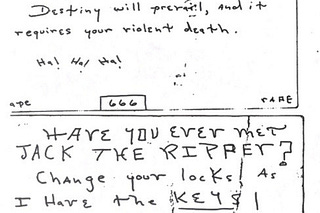 Destiny will prevail, and it
requires your violent death.
Ha! Ha! Ha!
ape 666 RAPE
HAVE YOU EVER MET
JACK THE RIPPER?
Change your locks As
I Have the KEYS!